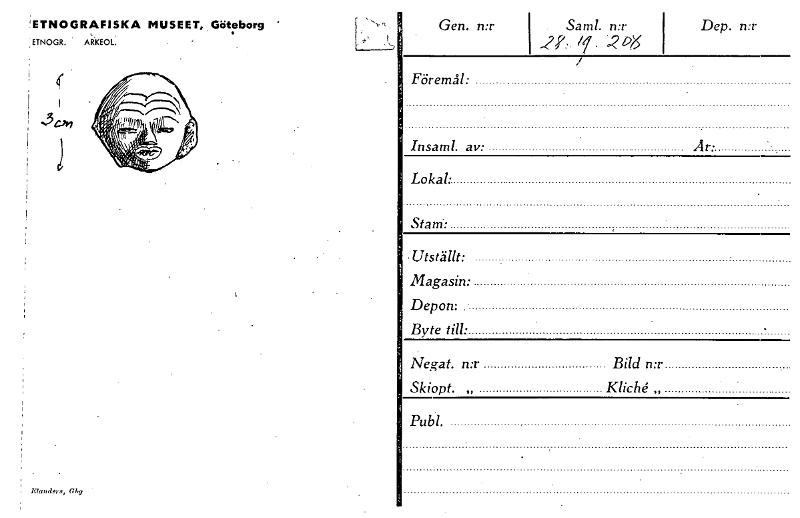 ETNOGRAFISKA MUSEET, Göteborg
ETNOGR. ARKEOL.
3 cm
Elanders, Gbg
Gen. n:r Saml. n:r Dep. n:r
28.19.206
Föremål:
Insaml. av: År:
Lokal:
Stam:
Utställt:
Magasin:
Depon:
Byte till:
Negat. n:r Bild n:r
Skiopt. „ Kliché „
Publ.